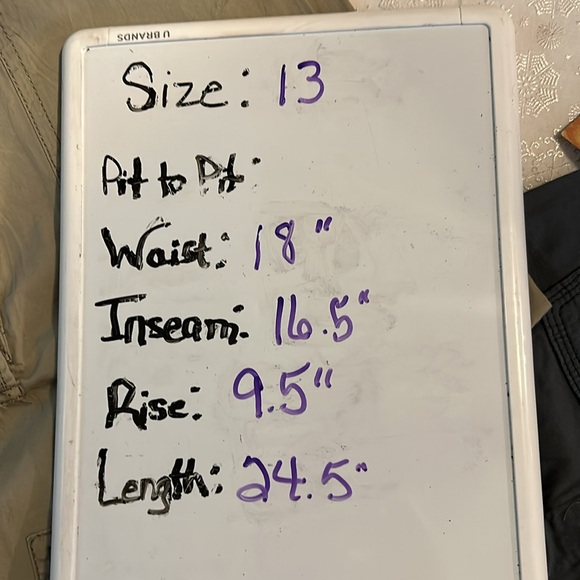 U BRANDS
Size: 13
Pit to Pit:
Waist: 18"
Inseam: 16.5"
Rise: 9.5"
Length: 24.5"